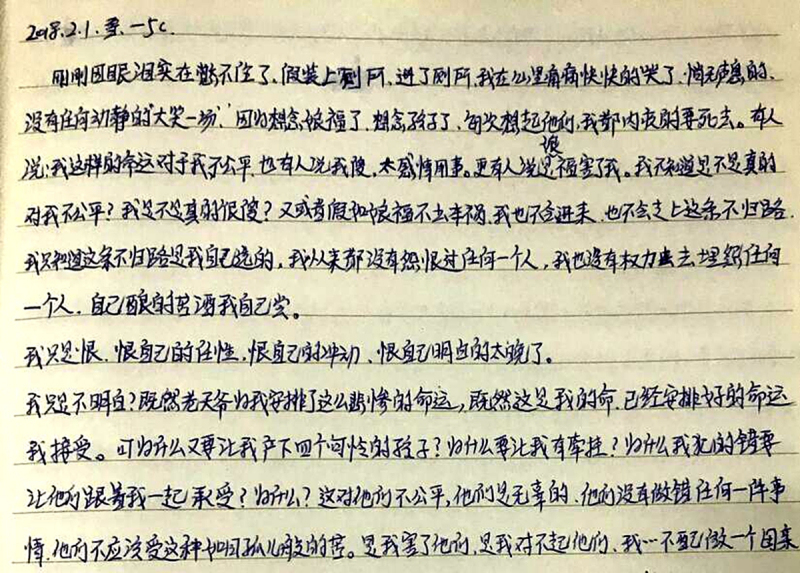 2018.2.1. 雾. -5℃.
刚刚因眼泪实在憋不住了、假装上厕所、进了厕所、我在公里痛痛快快的哭了、悄无声息的、
没有任何动静的“大哭一场”因为想念娘福了、想念孩子了、每次想起他们、我都内疚的要死去。有人
说:我这样的命运对于我不公平、也有人说我傻、太感情用事。更有人说是娘福害了我。我不知道是不是真的
对我不公平？我是不是真的很傻？又或者假如娘福不出车祸、我也不会进来、也不会走上这条不归路.
我只知道这条不归路是我自己选的、我从来都没有怨恨过任何一个人、我也没有权力去埋怨任何
一个人、自己酿的苦酒我自己尝。
我只是恨、恨自己的任性、恨自己的冲动、恨自己明白的太晚了。
我只是不明白？既然老天爷为我安排了这么悲惨的命运，既然这是我的命、已经安排好的命运
我接受。可为什么又要让我产下四个可怜的孩子？为什么要让我有牵挂？为什么我犯的错要
让他们跟着我一起承受？为什么？这对他们不公平，他们是无辜的、他们没有做错任何一件事
情、他们不应该受这种如同孤儿般的苦。是我害了他们、是我对不起他们、我…不配做一个母亲